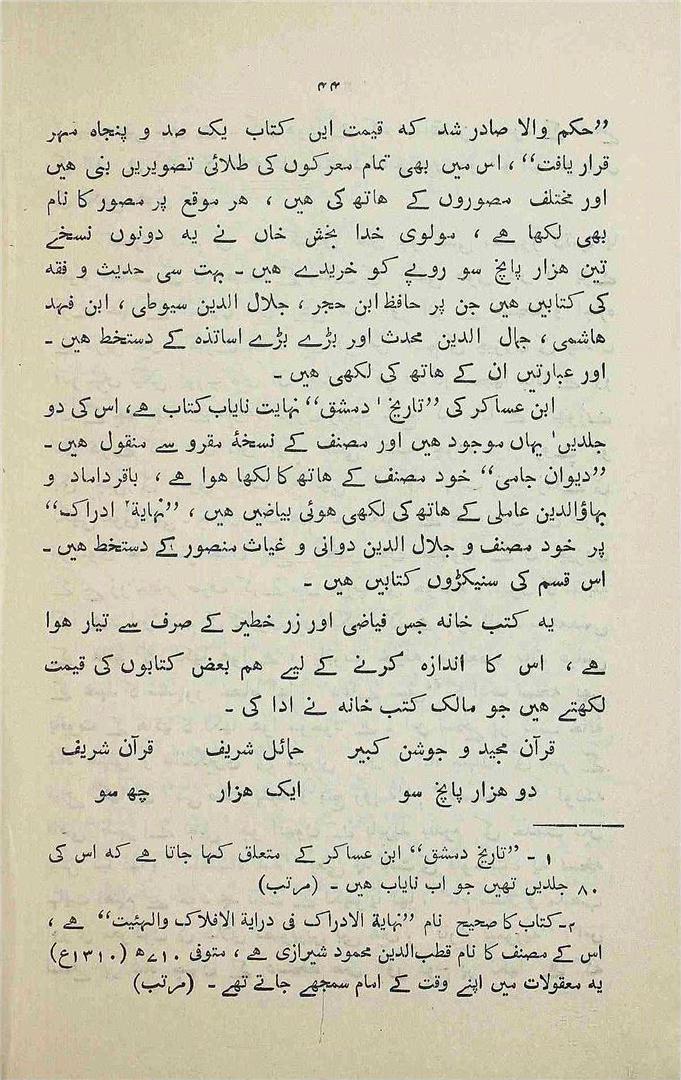 ۴۴
”حکم والا صادر شد که قیمت ایں کتاب یک صد و پنجاه مہر
قرار یافت“ ، اس میں بھی تمام معرکوں کی طلائی تصویریں بنی ھیں
اور مختلف مصوروں کے ھاتھ کی ھیں ، ھر موقع پر مصور کا نام
بھی لکھا ھے ، مولوی خدا بخش خاں نے یه دونوں نسخے
تین ھزار پانچ سو روپے کو خریدے ھیں ۔ بہت سی حدیث و فقه
کی کتابیں ھیں جن پر حافظ ابن حجر ، جلال الدین سیوطی ، ابن فہد
ھاشمی ، جمال الدین محدث اور بڑے بڑے اساتذه کے دستخط ھیں ۔
اور عبارتیں ان کے ھاتھ کی لکھی ھیں ۔
ابن عساکر کی ”تاریخ ۱ دمشق“ نہایت نایاب کتاب ھے، اس کی دو
جلدیں' یہاں موجود ھیں اور مصنف کے نسخۂ مقرو سے منقول ھیں ۔
”دیوان جامی“ خود مصنف کے ھاتھ کا لکھا ھوا ھے ، باقر داماد و
بہاؤالدین عاملی کے ھاتھ کی لکھی ھوئی بیاضیں ھیں ، ”نہایة۲ ادراک“
پر خود مصنف و جلال الدین دوانی و غیاث منصور کے دستخط ھیں ۔
اس قسم کی سنیکڑوں کتابیں ھیں ۔
یه کتب خانه جس فیاضی اور زر خطیر کے صرف سے تیار ھوا
ھے ، اس کا اندازه کرنے کے لیے ھم بعض کتابوں کی قیمت
لکھتے ھیں جو مالک کتب خانه نے ادا کی ۔
قرآن مجید و جوشن کبیر حمائل شریف قرآن شریف
دو ھزار پانچ سو ایک ھزار چھ سو
۱ ۔ ”تاریخ دمشق“ ابن عساکر کے متعلق کہا جاتا ھے که اس کی
۸۰ جلدیں تھیں جو اب نایاب ھیں ۔ (مرتب)
۲۔کتاب کا صحیح نام ”نہایة الادراک فی درایة الافلاک والہئیت“ ھے ،
اس کے مصنف کا نام قطب‌الدین محمود شیرازی ھے ، متوفی ۷۱۰ھ (۱۳۱۰ع)
یه معقولات میں اپنے وقت کے امام سمجھے جاتے تھے ۔ (مرتب)